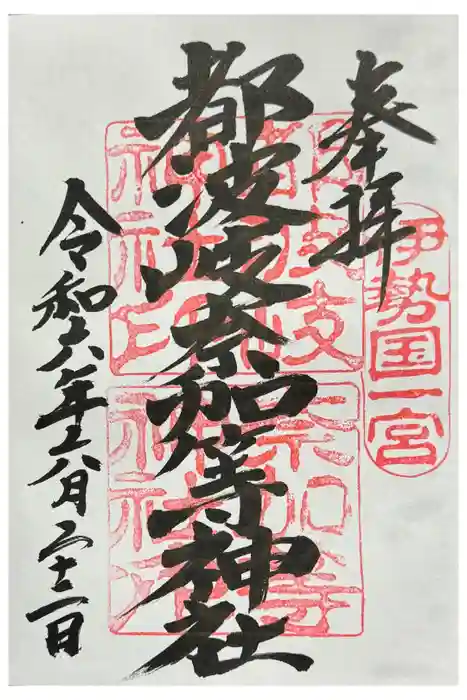 奉拝
伊勢国一宮
都波岐奈加等神社
令和六年六月二十二日